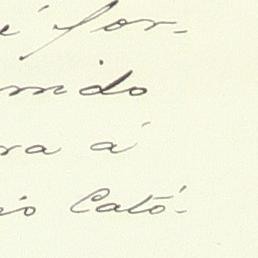 é for-
mido
ra á
io Cató-